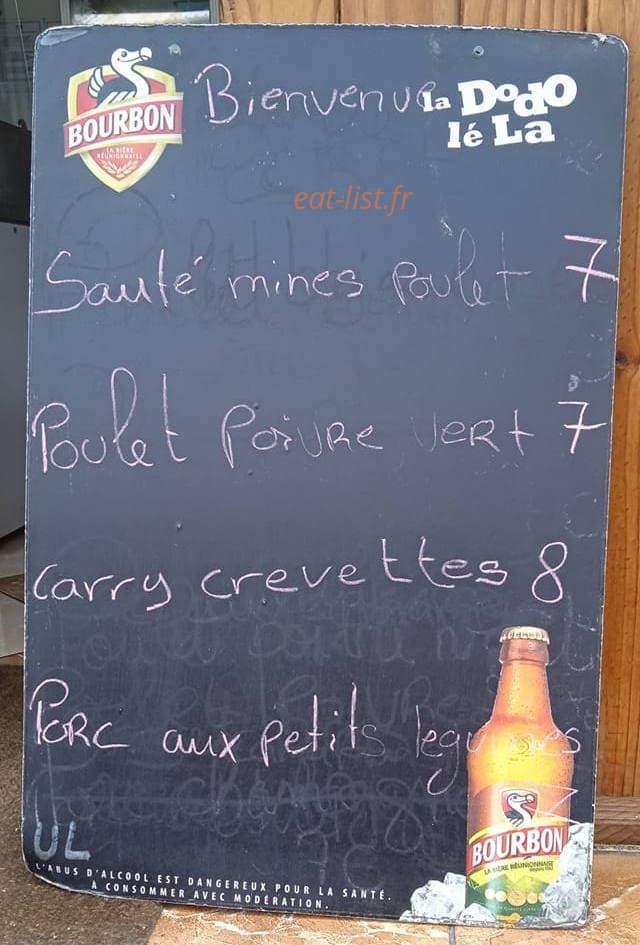 BOURBON
LA BIÈRE
RÉUNIONNAISE
Bienvenue
la Dodo
lé La
eat-list.fr
Sauté mines poulet 7
Poulet Poivre vert 7
carry crevettes 8
Porc aux petits legumes
7
UL
L'ABUS D'ALCOOL EST DANGEREUX POUR LA SANTÉ.
À CONSOMMER AVEC MODÉRATION.
BOURBON
LA BIÈRE RÉUNIONNAISE